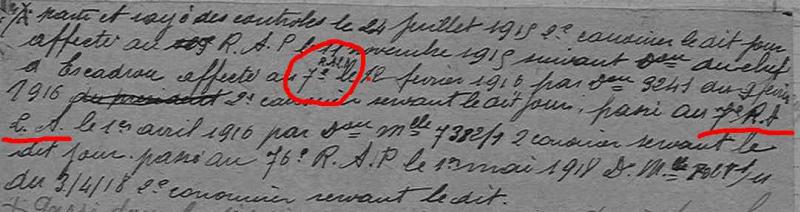 parti et rayé des contrôles le 24 juillet 1915 2e canonier le dit jour
affecté au R.A.P le 11 novembre 1915 suivant Don du chef
d'Escadron affecté au 7e R.A.M. le 12 février 1916 par Don 9241 du février
1916 du présent 2e canonier servant le dit jour, passé au 7e R.A
L.A. le 1er avril 1916 par Don Mlle 7382/1 2 canonier servant le
dit jour. passé au 76e R.A.P le 1er mai 1918 D. Mlle
du 3/4/18 2e canonier servant le dit.